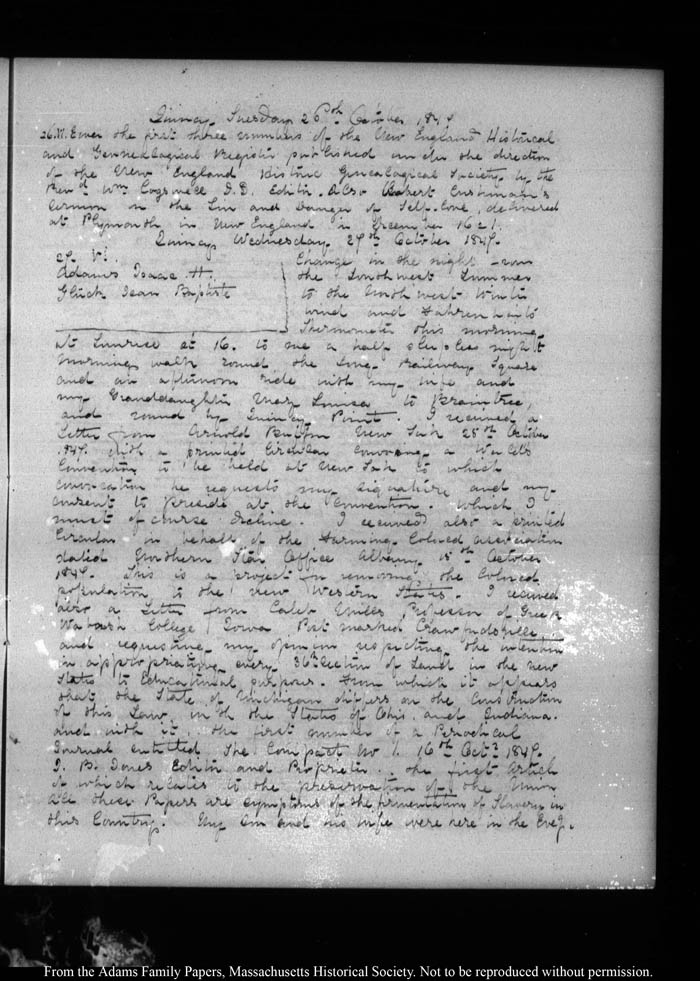 Quincy Tuesday 26th October 1847.
26. VI. Ever the first three numbers of the New England Historical
and Genealogical Register published under the direction
of the New England Historic Genealogical Society by the
Revd Wm Cogswell D.D. Editor. Also Robert Cushman's
Sermon on the Sin and Danger of Self-love, delivered
at Plymouth in New England in December 1621.
Quincy Wednesday 27th October 1847.
27. VI.
Adams Isaac H.
Glück Jean Baptiste
Change in the night from
the Southwest Summer
to the Northwest Winter
wind and Fahrenheit's
Thermometer this morning
at Sunrise at 16. to me a half sleepless night
Morning walk round the Railway Square
and an afternoon ride with my wife and
my Granddaughter Mary Louisa to Braintree,
and round by Quincy Point. I received a
Letter from Arnold Buffum New York 25th October
1847. with a printed Circular convoking a World's
Convention to be held at New York to which
convocation he requests my signature and my
consent to preside at the Convention. Which I
must of course decline. I received also a printed
Circular in behalf of the Farming Colored Association
dated Northern Star Office Albany 15th October
1847. This is a project for removing the Colored
population to the new Western States. I received
also a Letter from Caleb Mills Professor of Greek
Wabash College Iowa Post marked Crawfordsville,
and requesting my opinion respecting the intention
in appropriating every 36th Section of Land in the new
States to Educational purposes. From which it appears
that the State of Michigan differs on the Construction
of this Law, with the States of Ohio and Indiana.
and with it the first number of a Periodical
Journal entitled The Compact No 1. 16th Octr 1847.
J. B. Jones Editor and Proprietor. the first Article
of which relates to the preservation of the Union
All these Papers are symptoms of the fermentation of Slavery in
this Country. My Son and his wife were here in the Eveg.
From the Adams Family Papers, Massachusetts Historical Society. Not to be reproduced without permission.